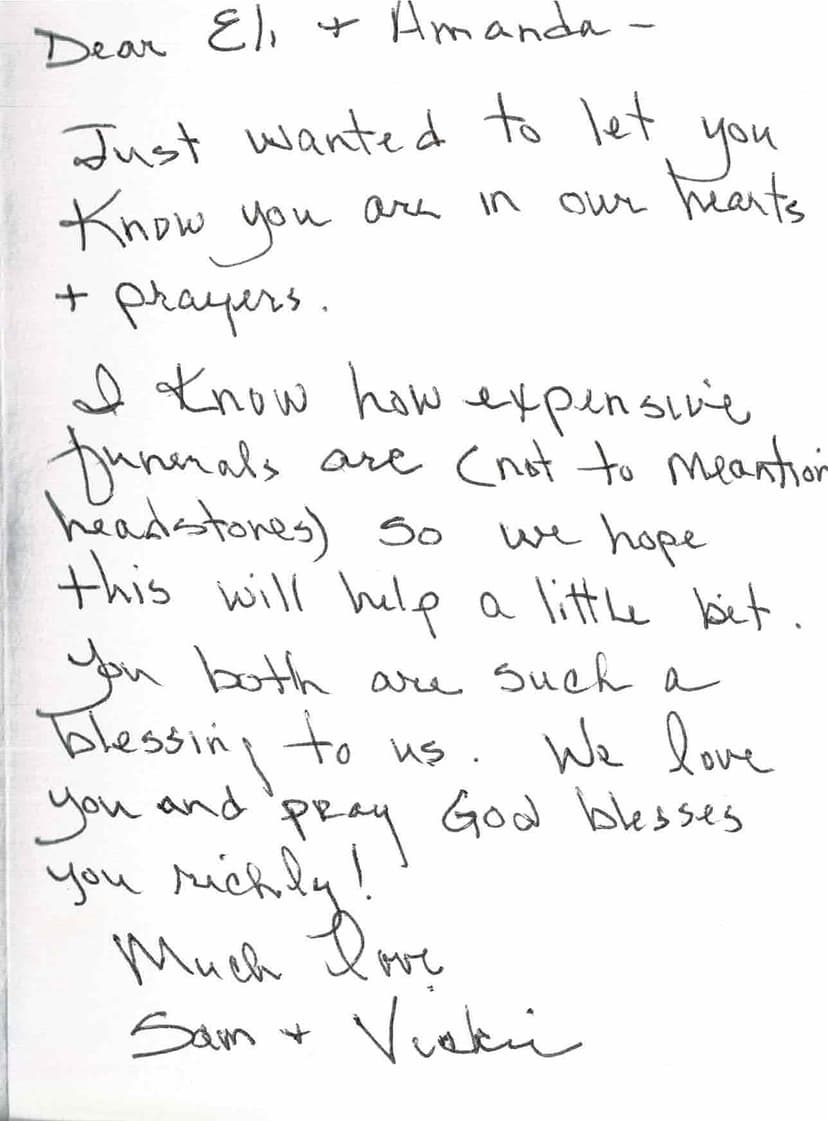 Dear Eli + Amanda -
Just wanted to let you
Know you are in our hearts
+ prayers.
I know how expensive
funerals are (not to meantion
headstones) so we hope
this will help a little bit.
You both are such a
blessing to us. We love
you and pray God blesses
you richly!
Much love
Sam + Vickie